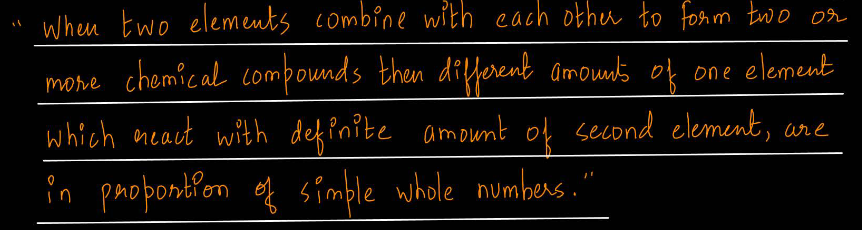 " When two elements combine with each other to form two or
more chemical compounds then different amounts of one element
which react with definite amount of second element, are
in proportion of simple whole numbers."